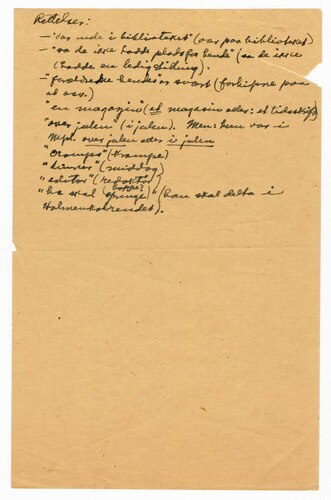 Rettelser:
— "var inde i biblioteket" (var paa biblioteket)
— "sa de ikke hadde plads for hende" (sa de ikke
(hadde en ledig stilling).
— "foreldede hendes" er svært (forkjærte paa
at osv.)
"en magazin" (et magasin eller: et tidsskrift)
"over julen" (i julen). Men: hun var i
Mpl. over julen eller i julen
"Cramps" (Krampe)
"dinner" (middag)
"editor" (redaktør)
hoppe?
"ha skal springe" (han skal delta i
Holmenkolrendet).